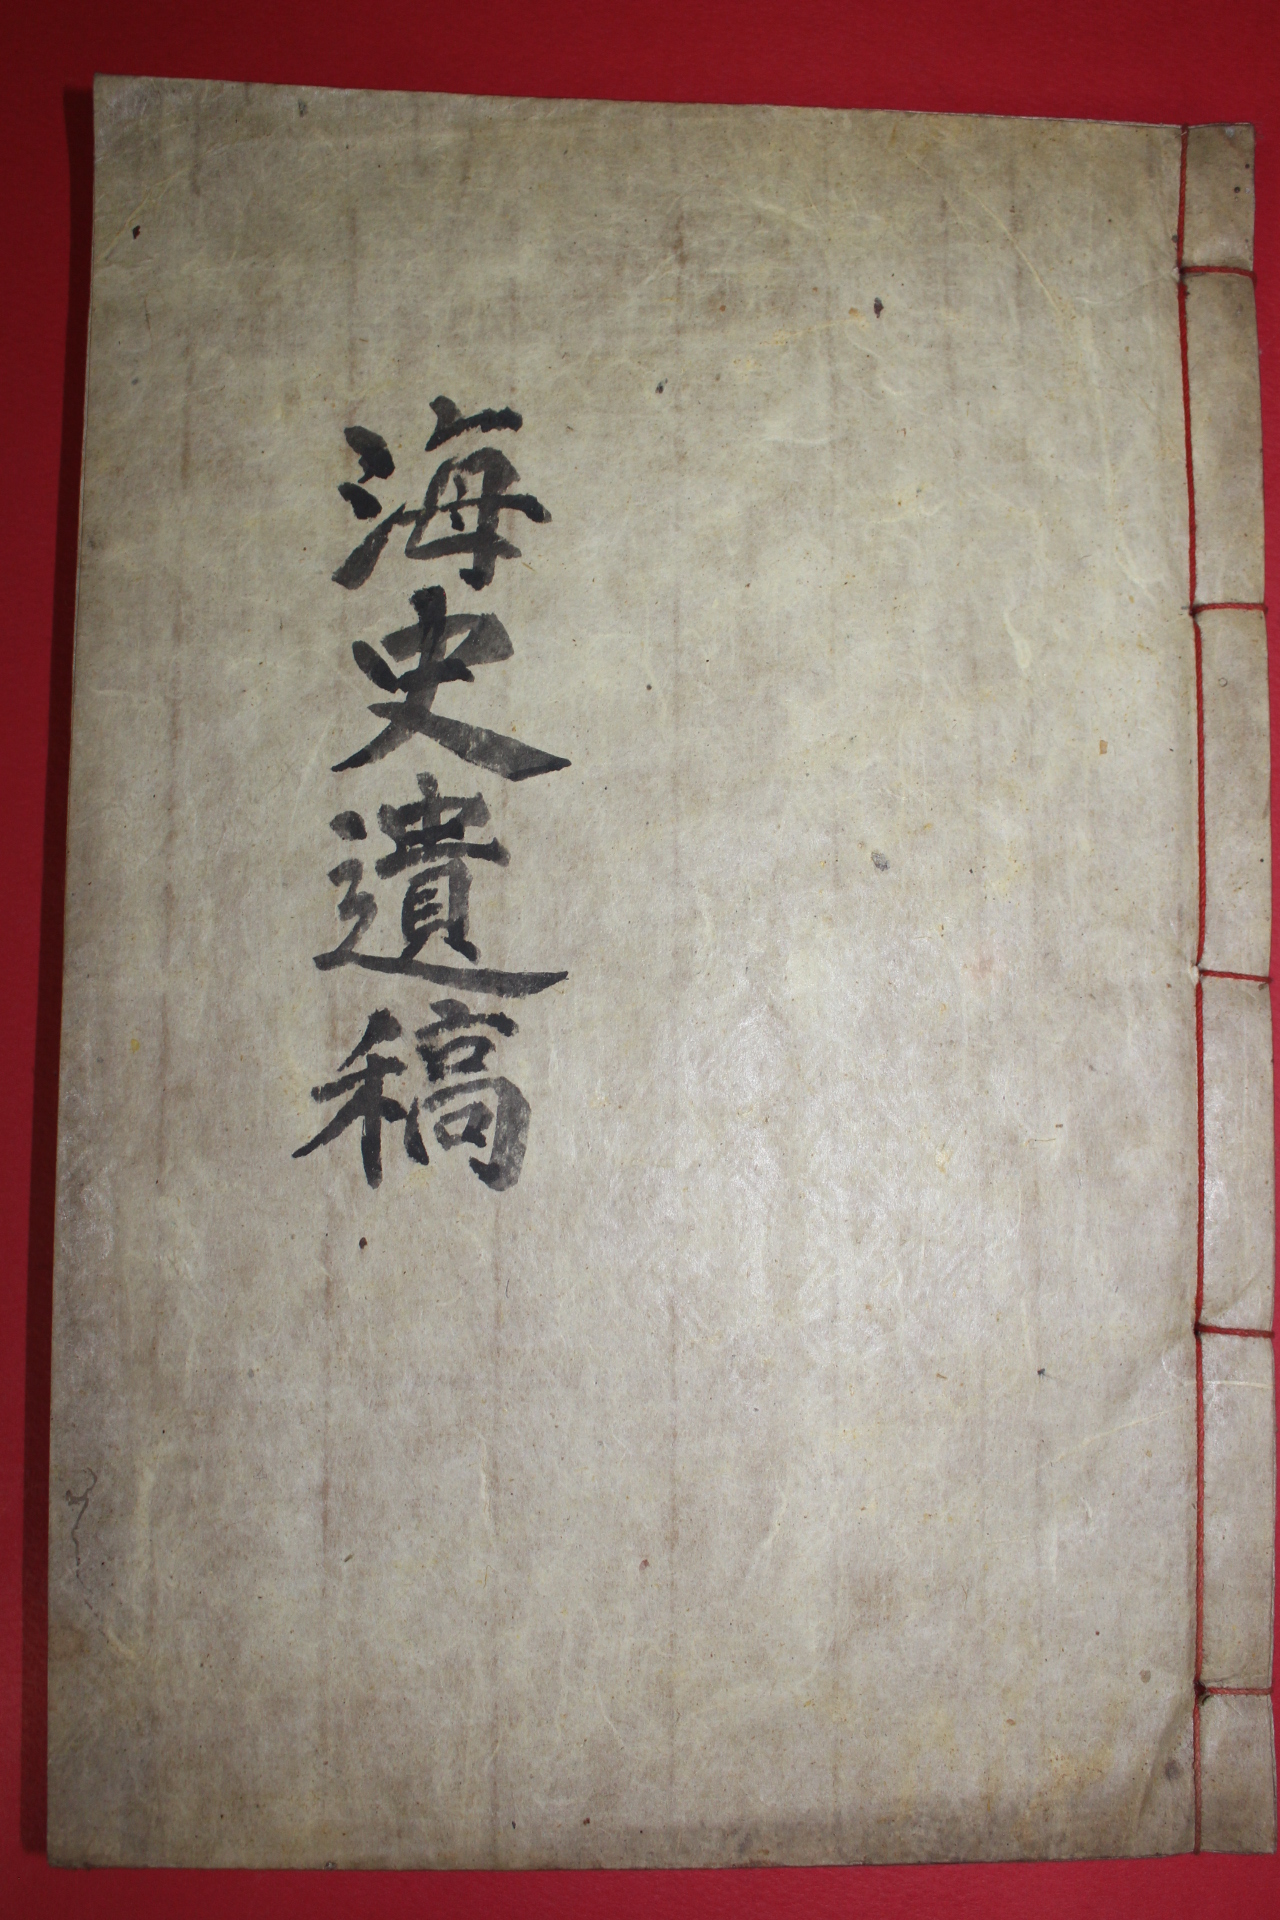 海史遺稿